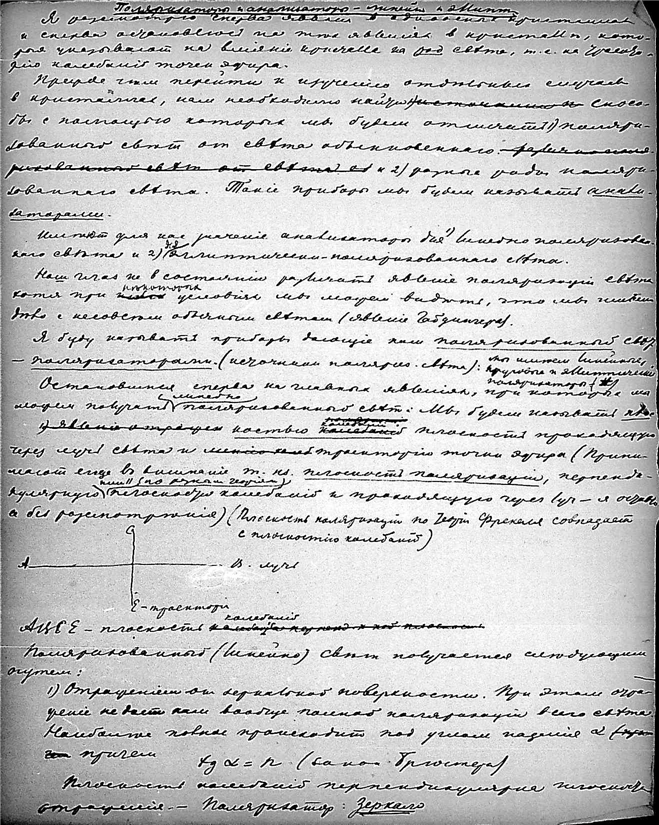 Поляризаторы и анализаторы — линейн. и эллипт.
Я рассмотрю сперва явления в одноосных кристаллах
и сперва остановлюсь на тех явленіях в кристаллѣ, кото-
рыя указывают на вліяніе кристалла на род свѣта, т.е. на
колебаній точек эфира.
Прежде чѣм перейти к изученію отдѣльных случаев
в кристаллах, нам необходимо найти спосо-
бы с помощью которых мы будем отличать 1) поляри-
зованный свѣт от свѣта обыкновеннаго
ризованный свѣт от свѣта и 2) разные роды поляри-
зованнаго свѣта. Такіе приборы мы будем называть анали-
заторами.
Имѣют для нас значеніе анализаторы для 1) линейно поляризован-
наго свѣта и 2) для эллиптически-поляризованнаго свѣта.
Наш глаз не в состояніи различать явленіе поляризаціи свѣта
хотя при нѣкоторых условіях мы можем видѣть, что мы имѣем
дѣло с не совсем обычным свѣтом (явленіе Гайдингера).
Я буду называть приборы дающіе нам поляризованный свѣт
— поляризаторами. (источники поляриз. свѣта): мы имѣем линейные,
круговые и эллиптическіе
поляризаторы
Остановимся сперва на главных явленіях, при которых мы
можем получать линейно поляризованный свѣт: Мы будем называть плос-
1) явленіе отражен костью колебаній плоскость проходящую
через луч свѣта и траекторію точки эфира (Прини-
мают еще во вниманіе т. наз. плоскость поляризаціи, перпенди-
кулярную или || (по разным теоріям) плоскости колебаній и проходящую через луч — я оставлю
ее без разсмотрѣнія) (Плоскость поляризаціи по теоріи Френеля совпадает
с плоскостью колебаній)
C
A B. луч
E — траектория
АЦВЕ — плоскость колебаній
Поляризованный (линейно) свѣт получается слѣдующим
путем:
1) Отраженіем от зеркальной поверхности. При этом отра-
женіе не дает нам вообще полной поляризаціи всего свѣта.
Наиболѣе полное происходит под углом паденія α
причем
tg α = n. (закон Брюстера)
Плоскость колебаній перпендикулярна плоскости
отраженія. — Поляризатор: Зеркало